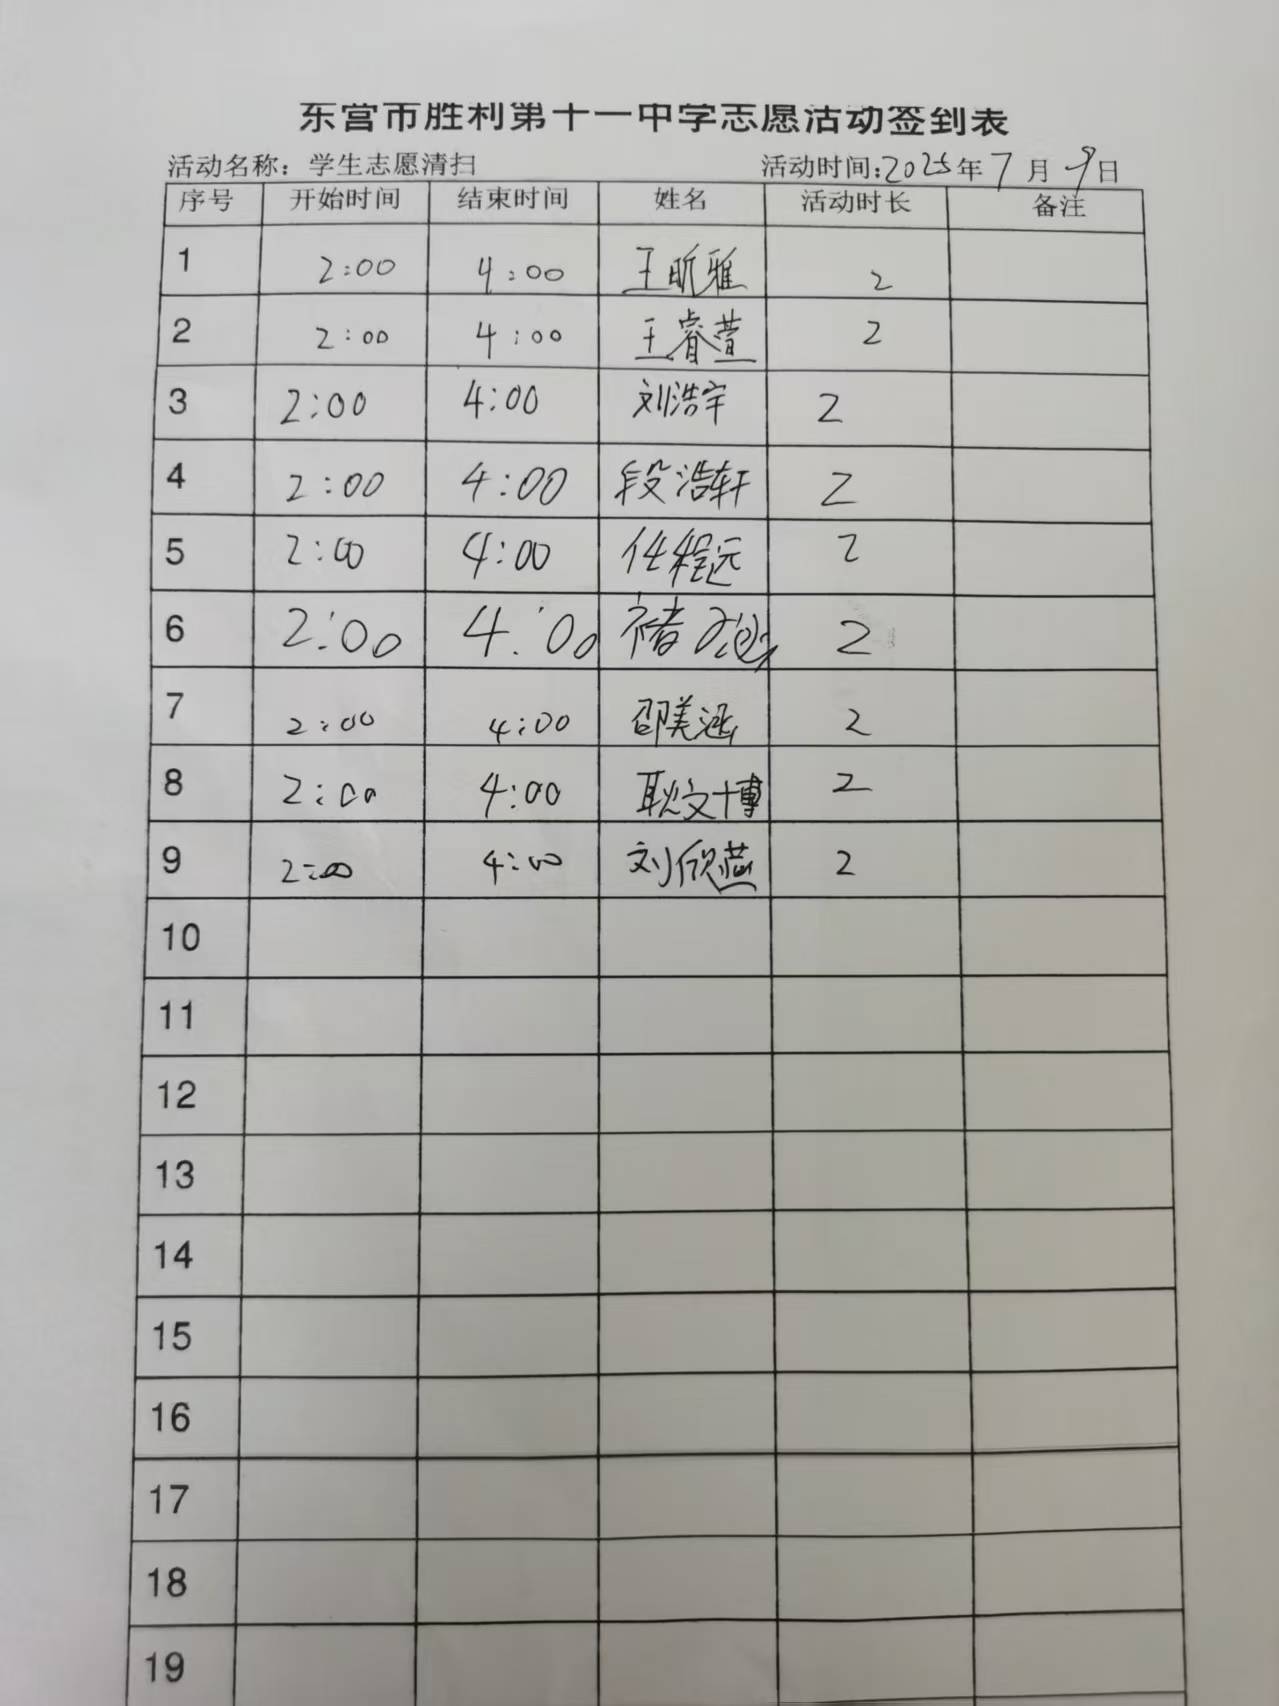 东营市胜利第十一中学志愿活动签到表
活动名称：学生志愿清扫 活动时间:2025年7月9日
序号 开始时间 结束时间 姓名 活动时长 备注
1 2:00 4:00 王昕雅 2
2 2:00 4:00 王睿萱 2
3 2:00 4:00 刘浩宇 2
4 2:00 4:00 段浩轩 2
5 2:00 4:00 任程远 2
6 2:00 4:00 褚 2
7 2:00 4:00 邵美涵 2
8 2:00 4:00 耿文博 2
9 2:00 4:00 刘欣燕 2
10
11
12
13
14
15
16
17
18
19